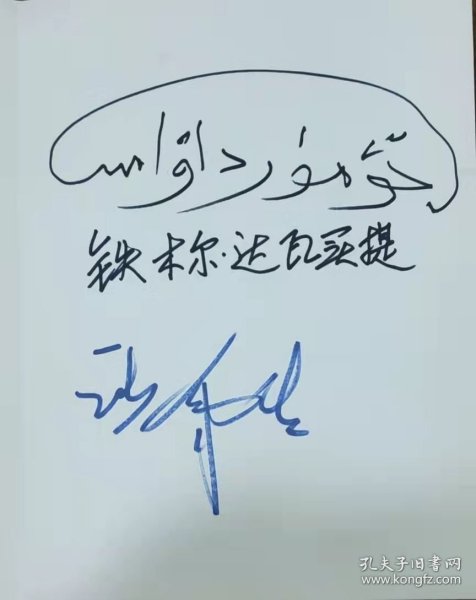 تۆمۈر داۋامەت
铁木尔·达瓦买提
孔夫子旧书网
www.kongfz.com